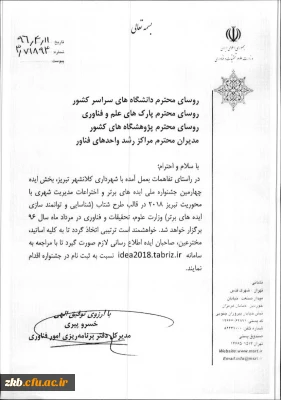 بسمه تعالی
جمهوری اسلامی ایران
تاریخ ۹۶,۴,۱۱
شماره ۳/۷۱۸۹۳
پیوست
روسای محترم دانشگاه های سراسر کشور
روسای محترم پارک های علم و فناوری
روسای محترم پژوهشگاه های کشور
مدیران محترم مراکز رشد واحدهای فناور
با سلام و احترام؛
در راستای تفاهمات بعمل آمده با شهرداری کلانشهر تبریز، بخش ایده
چهارمین جشنواره ملی ایده های برتر و اختراعات مدیریت شهری با
محوریت تبریز ۲۰۱۸ در قالب طرح شتاب (شناسایی و توانمند سازی
ایده های برتر) وزارت علوم، تحقیقات و فناوری در مرداد ماه سال ۹۶
برگزار خواهد شد. خواهشمند است ترتیبی اتخاذ گردد تا به کلیه اساتید،
مخترعین، صاحبان ایده اطلاع رسانی لازم صورت گیرد تا با مراجعه به
سامانه idea2018.tabriz.ir نسبت به ثبت نام در جشنواره اقدام
نمایند.
با آرزوی توفیق الهی
خسرو پیری
مدیر کل دفتر برنامه ریزی امور فناوری
تهران - شهرک قدس
zkb.cfu.ac.ir